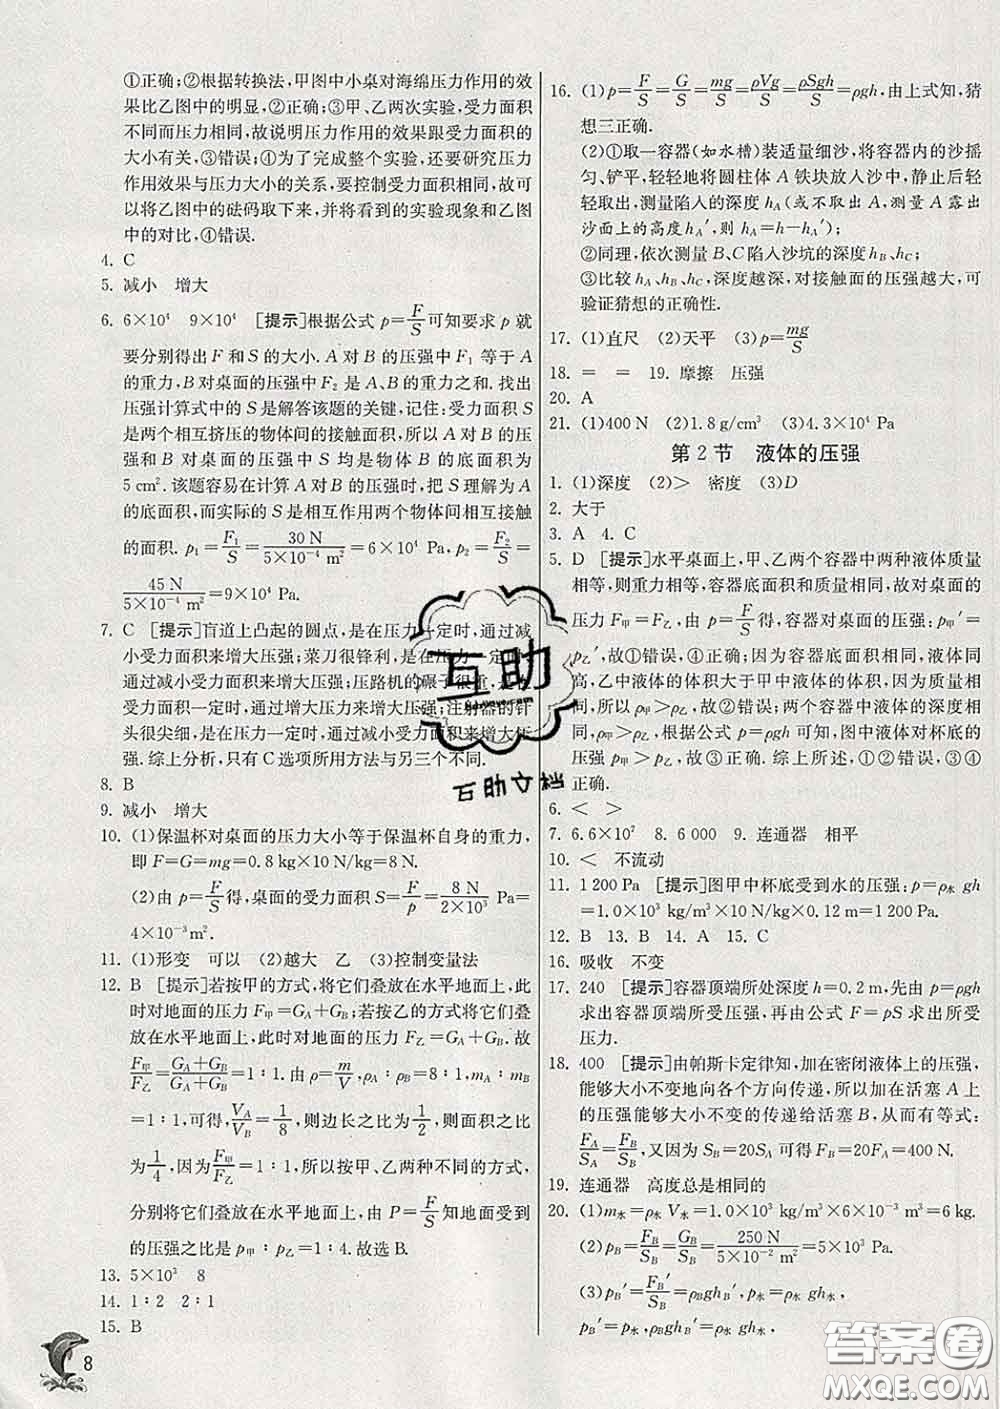 ①正确;②根据转换法,甲图中小桌对海绵压力作用的效
果比乙图中的明显,②正确;③甲、乙两次实验,受力面积
不同而压力相同,故说明压力作用的效果跟受力面积的
大小有关,③错误;④为了完成整个实验,还要研究压力
作用效果与压力大小的关系,要控制受力面积相同,故可
以将乙图中的砝码取下来,并将看到的实验现象和乙图
中的对比,④错误.
4. C
5. 减小 增大
6. 6×10⁴ 9×10⁴ [提示]根据公式 p=F/S可知要求 p 就
要分别得出 F 和 S 的大小. A 对 B 的压强中 F₁ 等于 A
的重力,B 对桌面的压强中 F₂ 是 A、B 的重力之和. 找出
压强计算式中的 S 是解答该题的关键,记住:受力面积 S
是两个相互挤压的物体间的接触面积,所以 A 对 B 的压
强和 B 对桌面的压强中 S 均是物体 B 的底面积为
5 cm². 该题容易在计算 A 对B 的压强时,把 S 理解为 A
的底面积,而实际的 S 是相互作用两个物体间相互接触
的面积. p₁=F₁/S=30 N/(5×10⁻⁴ m²)=6×10⁴ Pa,p₂=F₂/S=
45 N/(5×10⁻⁴ m²)=9×10⁴ Pa.
7. C [提示]盲道上凸起的圆点,是在压力一定时,通过减
小受力面积来增大压强;菜刀很锋利,是在压力一定时,
通过减小受力面积来增大压强;压路机的碾子很重,是
面积一定时,通过增大压力来增大压强;注射器的针
头很尖细,是在压力一定时,通过减小受力面积来增大压
强. 综上分析,只有 C 选项所用方法与另三个不同.
8. B
9. 减小 增大
10. (1)保温杯对桌面的压力大小等于保温杯自身的重力,
即 F=G=mg=0.8 kg×10 N/kg=8 N.
(2)由 p=F/S得,桌面的受力面积 S=F/p=8 N/(2×10³ Pa)=
4×10⁻³m².
11. (1)形变 可以 (2)越大 乙 (3)控制变量法
12. B [提示]若按甲的方式,将它们叠放在水平地面上,此
时对地面的压力 F甲=GA+GB;若按乙的方式将它们叠
放在水平地面上,此时对地面的压力 F乙=GA+GB. 故
F甲/F乙=(GA+GB)/(GA+GB)=1∶1. 由 ρ=m/V,ρA∶ρB=1∶1,mA∶mB
=1∶1,可得,VA/VB=1/8,则边长之比为1/2,则面积之比
为1/4,因为F甲/F乙=1∶1,所以按甲、乙两种不同的方式,
分别将它们叠放在水平地面上,由 P=F/S知地面受到
的压强之比是 p甲∶p乙=1∶4. 故选 B.
13. 5×10³ 8
14. 1∶2 2∶1
15. B
8
16. (1)p=F/S=G/S=mg/S=ρVg/S=ρSgh/S=ρgh,由上式知,猜
想三正确.
(2)①取一容器(如水槽)装适量细沙,将容器内的沙摇
匀、铲平,轻轻地将圆柱体 A 铁块放入沙中,静止后轻
轻取出,测量陷入的深度 hA(或不取出 A,测量 A 露出
沙面上的高度 hA′,则 hA=h-hA′);
②同理,依次测量 B、C 陷入沙坑的深度 hB、hC;
③比较 hA、hB、hC,深度越深,对接触面的压强越大,可
验证猜想的正确性.
17. (1)直尺 (2)天平 (3)p=mg/S
18. = = 19. 摩擦 压强
20. A
21. (1)400 N (2)1.8 g/cm³ (3)4.3×10⁴ Pa
第 2 节 液体的压强
1. (1)深度 (2)> 密度 (3)D
2. 大于
3. A 4. C
5. D [提示]水平桌面上,甲、乙两个容器中两种液体质量
相等,则重力相等,容器底面积和质量相同,故对桌面的
压力 F甲=F乙,由 p=F/S得,容器对桌面的压强:p甲′=
p乙′,故①错误,④正确;因为容器底面积相同,液体同
高,乙中液体的体积大于甲中液体的体积,因为质量相
同,所以 ρ甲>ρ乙,故②错误;两个容器中液体的深度相
同,ρ甲>ρ乙,根据公式 p=ρgh 可知,图中液体对杯底的
压强 p甲>p乙,故③正确. 综上所述,①②错误,③④
正确.
6. < >
7. 6.6×10⁷ 8. 6 000 9. 连通器 相平
10. < 不流动
11. 1 200 Pa [提示]图甲中杯底受到水的压强:p=ρ水 gh
=1.0×10³ kg/m³×10 N/kg×0.12 m=1 200 Pa.
12. B 13. B 14. A 15. C
16. 吸收 不变
17. 240 [提示]容器顶端所处深度 h=0.2 m,先由 p=ρgh
求出容器顶端所受压强,再由公式 F=pS 求出所受
压力.
18. 400 [提示]由帕斯卡定律知,加在密闭液体上的压强,
能够大小不变地向各个方向传递,所以加在活塞 A 上
的压强能够大小不变的传递给活塞 B,从而有等式:
FA/SA=FB/SB,又因为 SB=20SA 可得 FB=20FA=400 N.
19. 连通器 高度总是相同的
20. (1)m水=ρ水 V水=1.0×10³ kg/m³×6×10⁻³ m³=6 kg.
(2)pB=FB/SB=GB/SB=250 N/(5×10⁻² m²)=5×10³ Pa.
(3)pB′=FB′/SB=ρBghB′,p水=ρ水 gh水,
pB′=p水,ρBghB′=ρ水 gh水,
互助
互助文档
答案圈
MXQE.COM